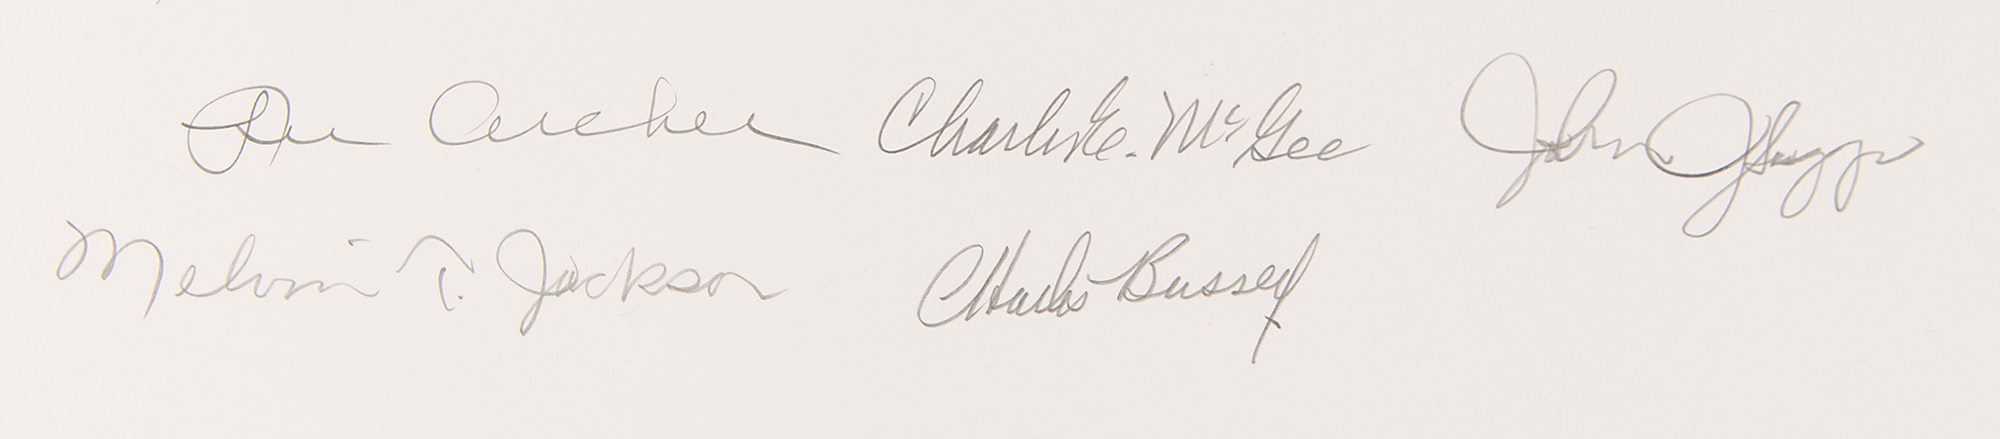 Lee Archer Charles E. McGee John J. Suggs
Melvin T. Jackson Charles Bussey